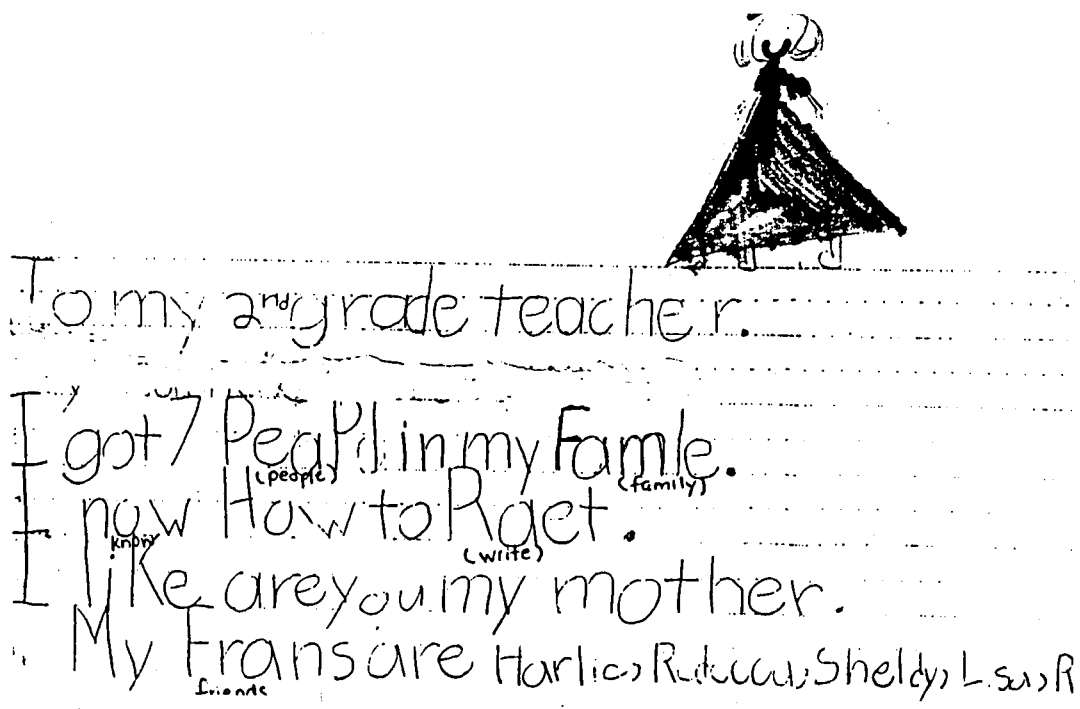 To my 2nd grade teacher.
I got 7 PeaPl in my Famle.
(people) (family)
I now How to Raet.
know (write)
I like are you my mother.
My Frans are Harlie, Sheldy,
friends